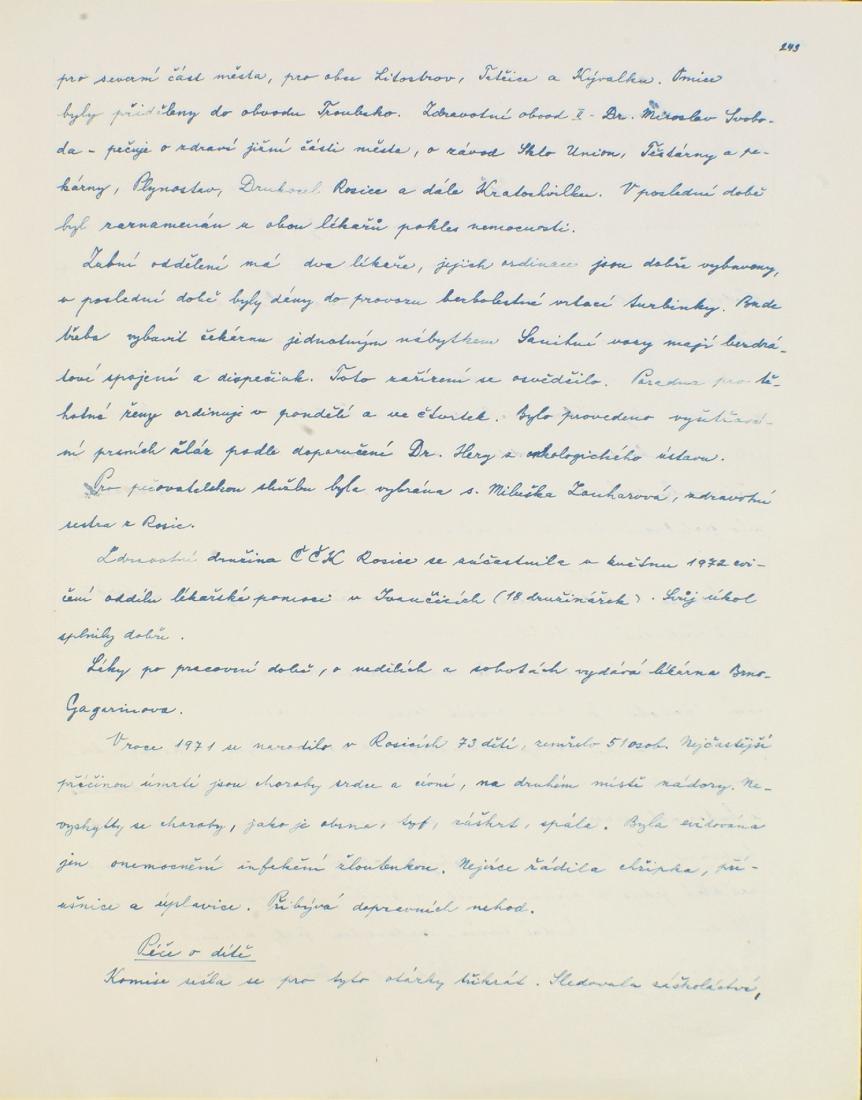 243
pro severní část města, pro obce Litostrov, Tetčice a Kývalku. Omice
byly přiděleny do obvodu Troubsko. Zdravotní obvod II - Dr. Miroslav Svobo-
da - pečuje o zdraví jižní části města, o závod Sklo Union, Těstárny a pe-
kárny, Plynostav, Rosice a dále Kratochvilku. V poslední době
byl zaznamenán u obou lékařů pokles nemocnosti.
Zubní oddělení má dva lékaře, jejich ordinace jsou dobře vybaveny,
v poslední době byly dány do provozu bezbolestné vrtací turbinky. Bude
třeba vybavit čekárnu jednotným nábytkem Sanitní vozy mají bezdrá-
tové spojení a dispečink. Toto zařízení se osvědčilo. Poradna pro tě-
hotné ženy ordinuje v pondělí a ve čtvrtek. Bylo provedeno vyšetřová-
ní prsních žláz podle doporučení Dr. Hery z onkologického ústavu.
Pro pečovatelskou službu byla vybrána s. Miluška Zouharová, zdravotní
sestra z Rosic.
Zdravotní družina ČČK Rosice se súčastnila v květnu 1972 cvi-
čení oddílu lékařské pomoci v Ivančicích (18 družinářek). Svůj úkol
splnily dobře.
Léky po pracovní době, o nedělích a sobotách vydává lékárna Brno-
Gagarinova.
V roce 1971 se narodilo v Rosicích 73 dětí, zemřelo 51 osob. Nejčastější
příčinou úmrtí jsou choroby srdce a cévní, na druhém místě nádory. Ne-
vyskytly se choroby, jako je obrna, tyf, záškrt, spála. Byla evidována
jen onemocnění infekční žloutenkou. Nejvíce řádila chřipka, pří-
ušnice a úplavice. Přibývá dopravních nehod.
Péče o dítě
Komise sešla se pro tyto otázky třikrát. Sledovala záškoláctví,